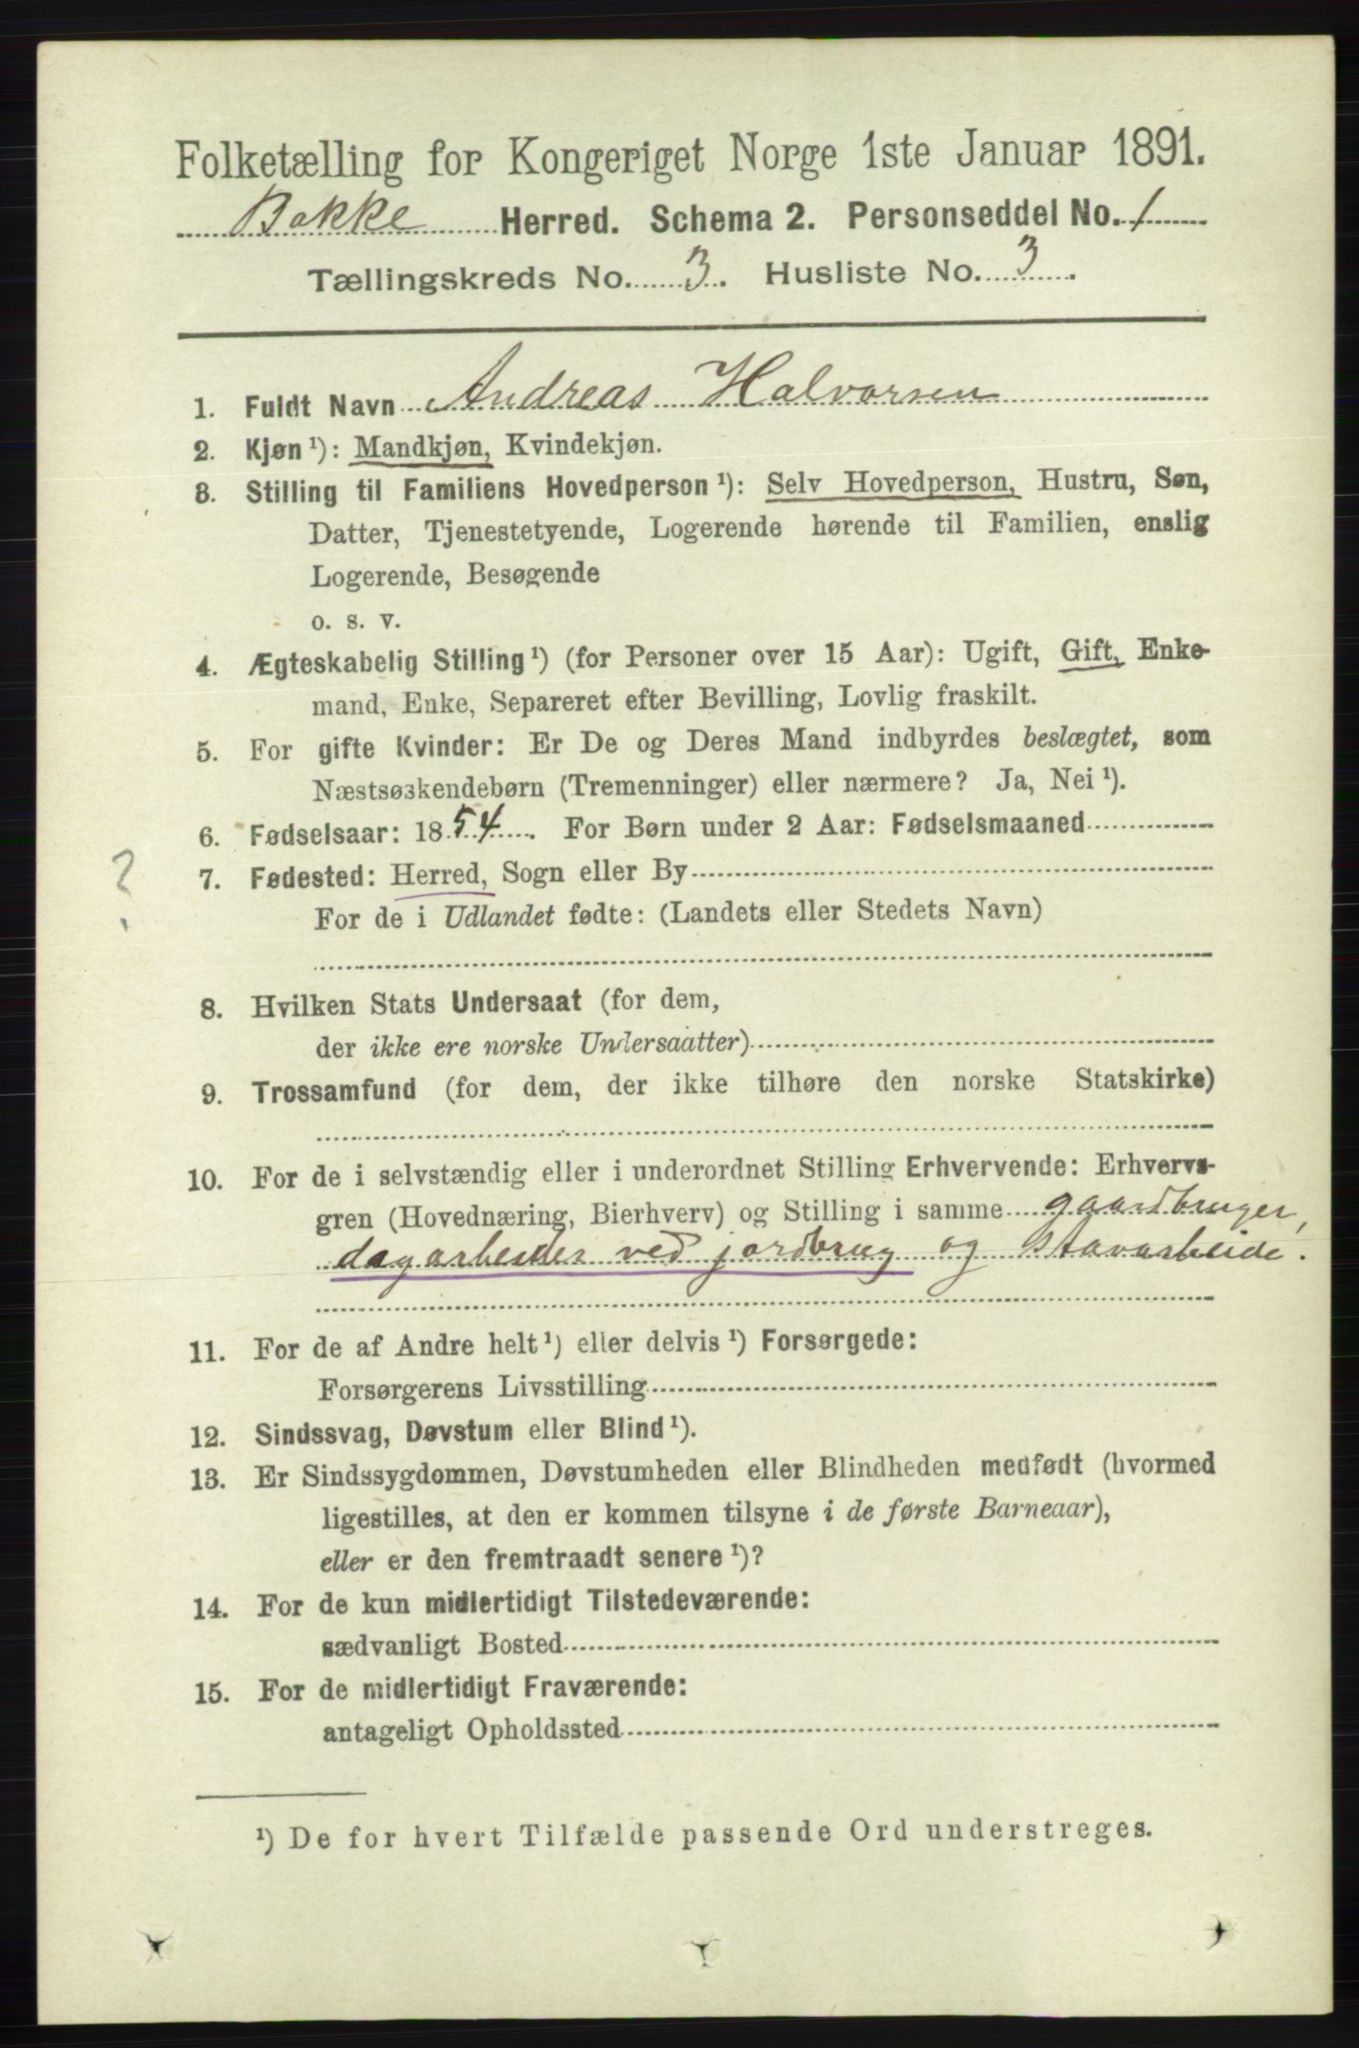 Folketælling for Kongeriget Norge 1ste Januar 1891.
Bakke Herred. Schema 2. Personseddel No. 1
Tællingskreds No. 3. Husliste No. 3.
1. Fuldt Navn Andreas Halvorsen
2. Kjøn ¹): Mandkjøn, Kvindekjøn.
3. Stilling til Familiens Hovedperson ¹): Selv Hovedperson, Hustru, Søn,
Datter, Tjenestetyende, Logerende hørende til Familien, enslig
Logerende, Besøgende
o. s. v.
4. Ægteskabelig Stilling ¹) (for Personer over 15 Aar): Ugift, Gift, Enke-
mand, Enke, Separeret efter Bevilling, Lovlig fraskilt.
5. For gifte Kvinder: Er De og Deres Mand indbyrdes beslægtet, som
Næstsøskendebørn (Tremenninger) eller nærmere? Ja, Nei ¹).
6. Fødselsaar: 1854. For Børn under 2 Aar: Fødselsmaaned
? 7. Fødested: Herred, Sogn eller By
For de i Udlandet fødte: (Landets eller Stedets Navn)
8. Hvilken Stats Undersaat (for dem,
der ikke ere norske Undersaatter)
9. Trossamfund (for dem, der ikke tilhøre den norske Statskirke)
10. For de i selvstændig eller i underordnet Stilling Erhvervende: Erhvervs-
gren (Hovednæring, Bierhverv) og Stilling i samme gaardbruger,
dagarbeider ved jordbrug og stavarbeide.
11. For de af Andre helt ¹) eller delvis ¹) Forsørgede:
Forsørgerens Livsstilling
12. Sindssvag, Døvstum eller Blind ¹).
13. Er Sindssygdommen, Døvstumheden eller Blindheden medfødt (hvormed
ligestilles, at den er kommen tilsyne i de første Barneaar),
eller er den fremtraadt senere ¹)?
14. For de kun midlertidigt Tilstedeværende:
sædvanligt Bosted
15. For de midlertidigt Fraværende:
antageligt Opholdssted
¹) De for hvert Tilfælde passende Ord understreges.